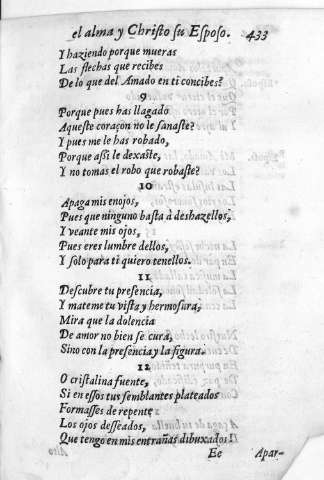 el alma y Christo su Esposo. 433
Y haziendo porque mueras
Las flechas que recibes
De lo que del Amado en ti concibes?
9
Porque pues has llagado
Aqueste coraçon no le sanaste?
Y pues me le has robado,
Porque assi le dexaste,
Y no tomas el robo que robaste?
10
Apaga mis enojos,
Pues que ninguno basta à deshazellos,
Y veante mis ojos,
Pues eres lumbre dellos,
Y solo para ti quiero tenellos.
11
Descubre tu presencia,
Y mateme tu vista y hermosura,
Mira que la dolencia
De amor no bien se cura,
Sino con la presencia y la figura.
12
O cristalina fuente,
Si en essos tus semblantes plateados
Formasses de repente
Los ojos desseados,
Que tengo en mis entrañas dibuxados!
Ee Apar-